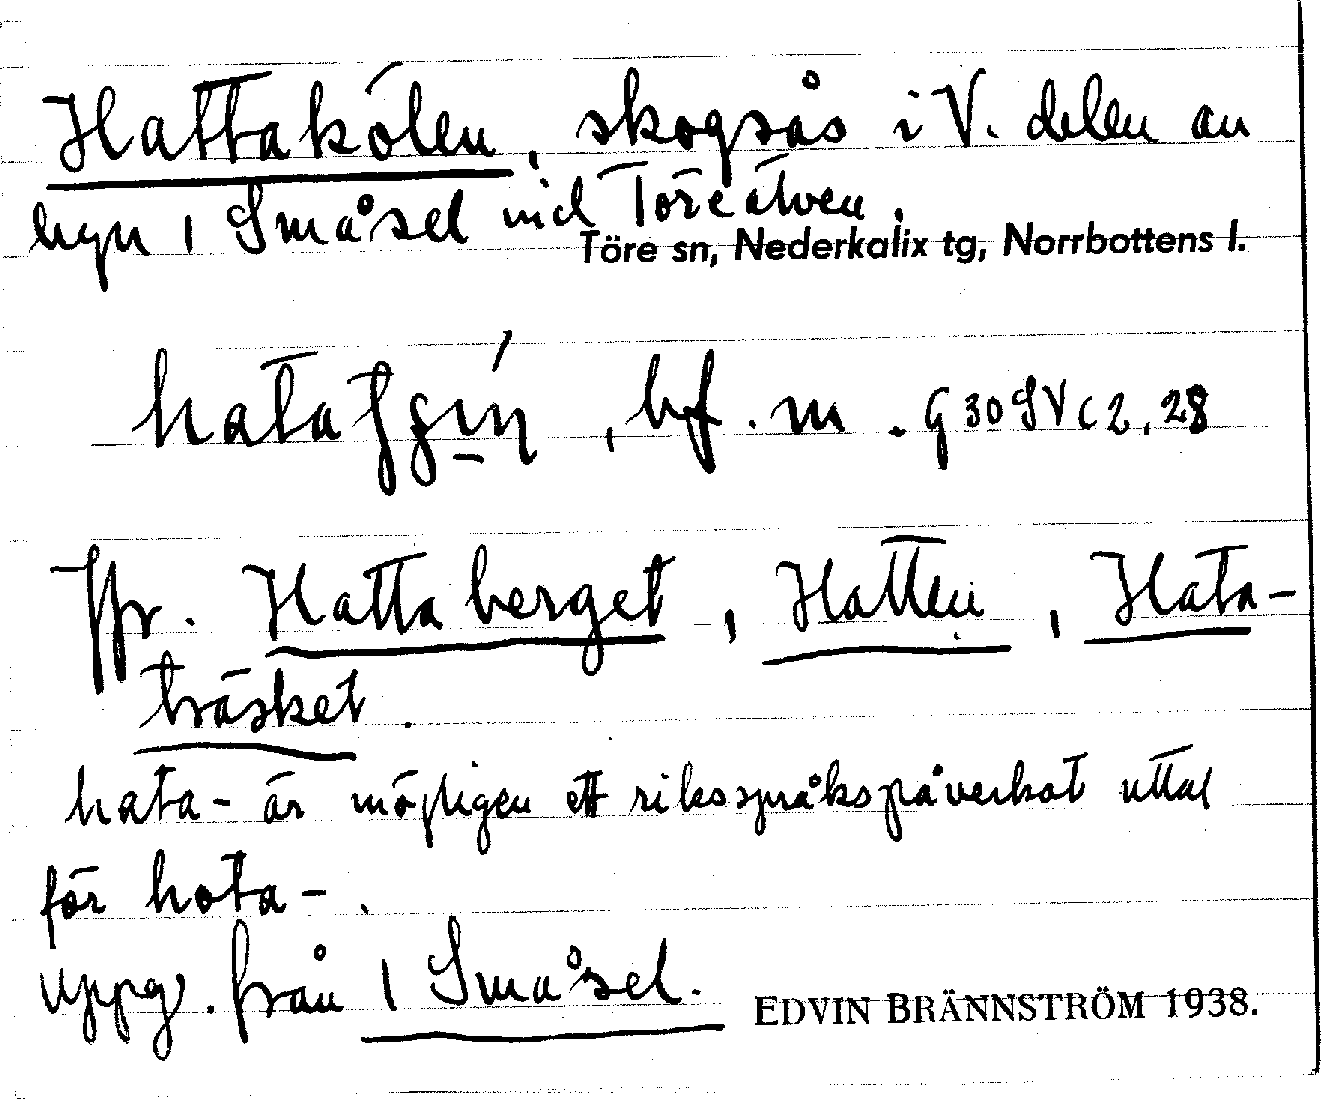 Hattakölen, skogsås i V. delen av
byn 1 Småsel vid Töreälven.
Töre sn, Nederkalix tg, Norrbottens l.
, bf. m. G 30 SV c 2, 28
Jfr. Hattaberget, Hatten, Hata-
träsket.
hata- är möjligen ett riksspråkspåverkat uttal
för hota-.
Uppg. från 1 Småsel.
EDVIN BRÄNNSTRÖM 1938.